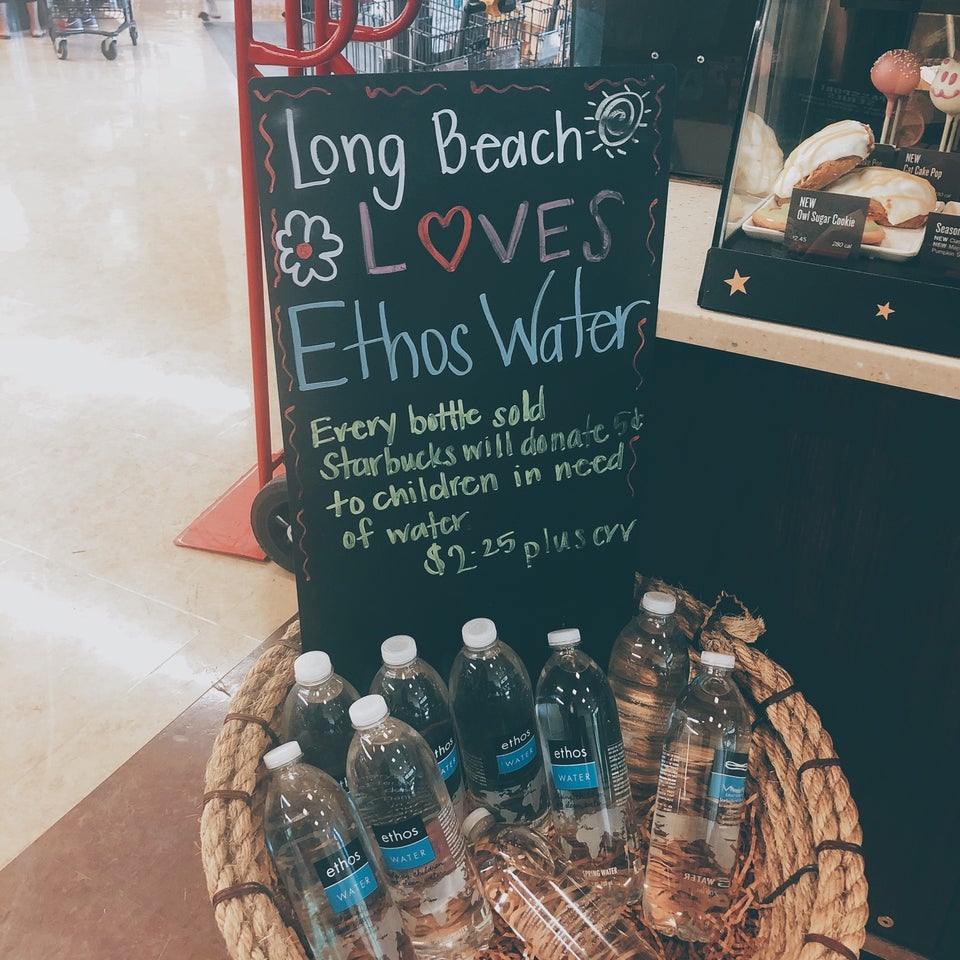 Long Beach
LOVES
Ethos Water
Every bottle sold
Starbucks will donate 5¢
to children in need
of water
$2.25 plus crv
NEW
Owl Sugar Cookie
$2.45 280 cal
NEW
Cat Cake Pop
Season
NEW
NEW
Pumpkin S
ethos
WATER
ethos
WATER
ethos
WATER
ethos
WATER
SPRING WATER
ethos
WATER
WATER